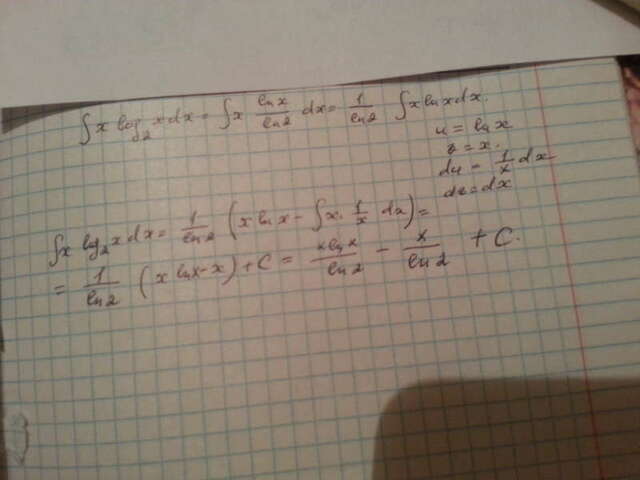 ∫x log₂ x dx = ∫x ln x / ln 2 dx = 1 / ln 2 ∫x ln x dx.
u = ln x
v = x.
du = 1/x dx
dv = dx
∫x log₂ x dx = 1 / ln 2 (x ln x - ∫x · 1/x dx) =
= 1 / ln 2 (x ln x - x) + C = x ln x / ln 2 - x / ln 2 + C.